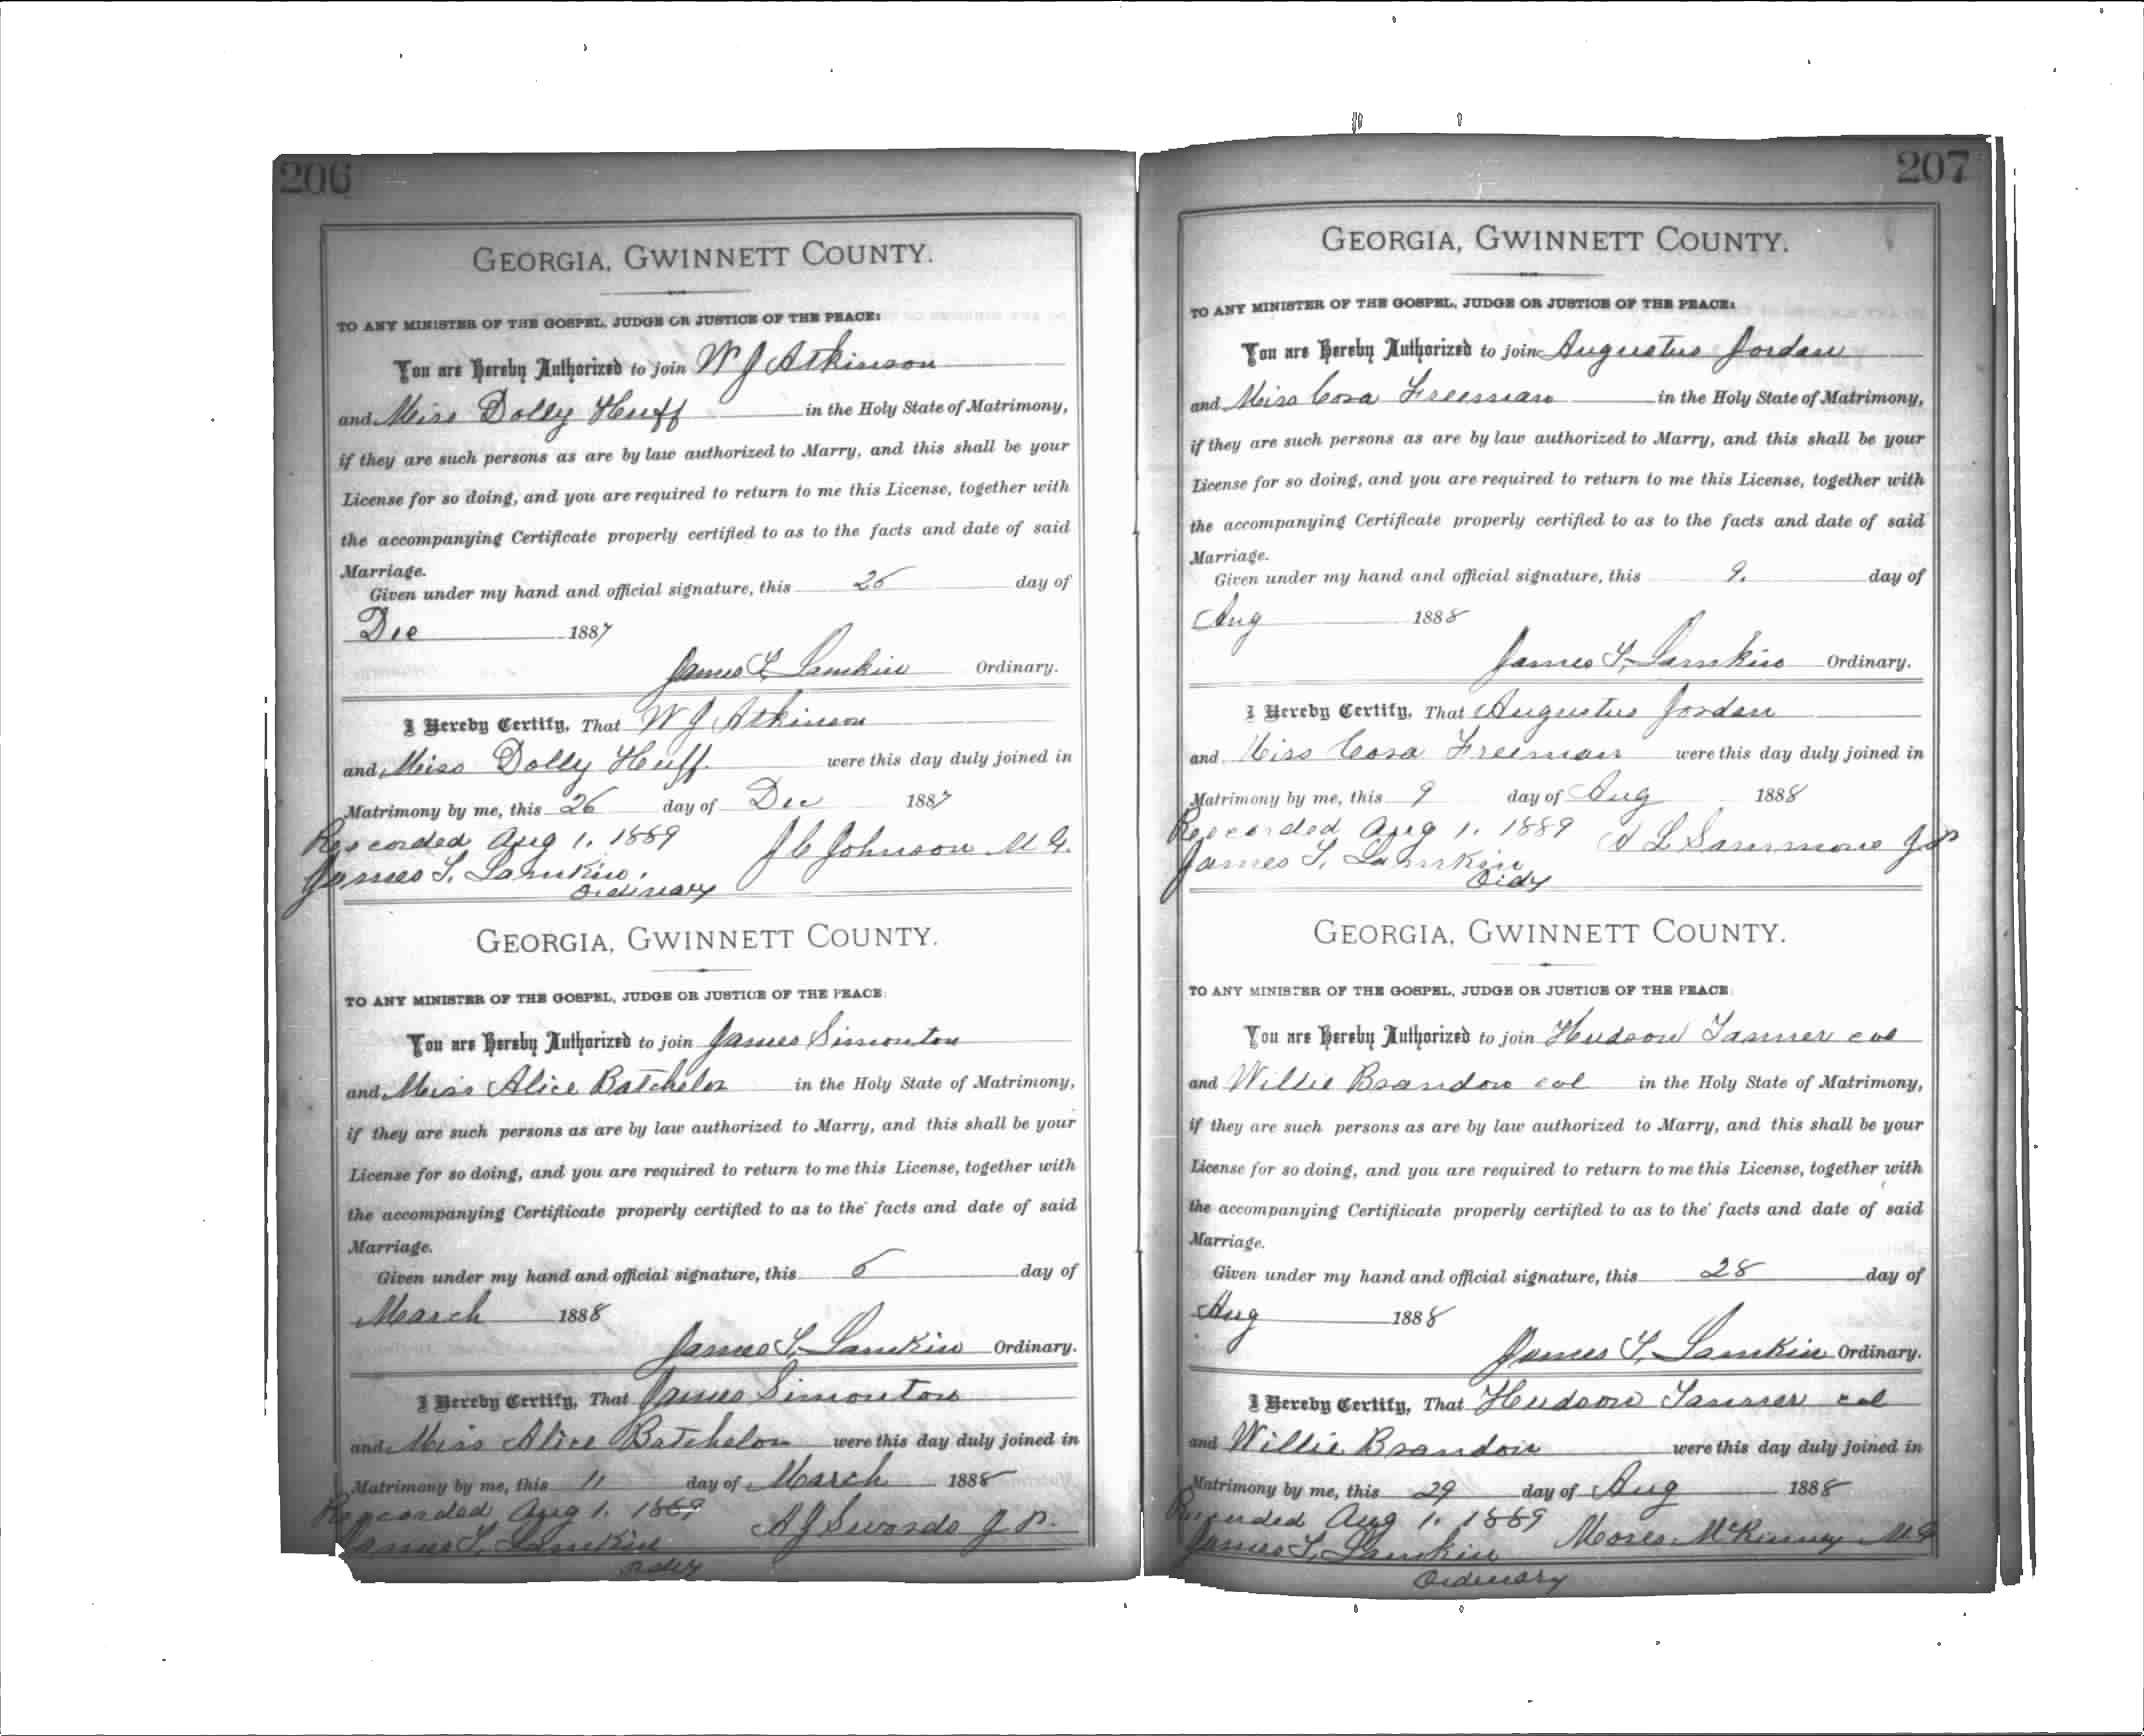 206
GEORGIA, GWINNETT COUNTY.
TO ANY MINISTER OF THE GOSPEL, JUDGE OR JUSTICE OF THE PEACE:
You are Hereby Authorized to join W J Atkinson
and Miss Dolly Huff in the Holy State of Matrimony,
if they are such persons as are by law authorized to Marry, and this shall be your
License for so doing, and you are required to return to me this License, together with
the accompanying Certificate properly certified to as to the facts and date of said
Marriage.
Given under my hand and official signature, this 25 day of
Dec 1887
James T. Lamkin Ordinary.
I Hereby Certify, That W J Atkinson
and Miss Dolly Huff were this day duly joined in
Matrimony by me, this 26 day of Dec 1887
Recorded Aug 1. 1889 J C Johnson M G.
James T. Lamkin.
Ordinary
GEORGIA, GWINNETT COUNTY.
TO ANY MINISTER OF THE GOSPEL, JUDGE OR JUSTICE OF THE PEACE:
You are Hereby Authorized to join James Simonton
and Miss Alice Batchelor in the Holy State of Matrimony,
if they are such persons as are by law authorized to Marry, and this shall be your
License for so doing, and you are required to return to me this License, together with
the accompanying Certifiicate properly certified to as to the facts and date of said
Marriage.
Given under my hand and official signature, this day of
March 1888
James T. Lamkin Ordinary.
I Hereby Certify, That James Simonton
and Miss Alice Batchelor were this day duly joined in
Matrimony by me, this 11 day of March 1888
Recorded Aug 1. 1889 A J Swords J P.
James T. Lamkin
Ordy
207
GEORGIA, GWINNETT COUNTY.
TO ANY MINISTER OF THE GOSPEL, JUDGE OR JUSTICE OF THE PEACE:
You are Hereby Authorized to join Augustus Jordan
and Miss Cora Freeman in the Holy State of Matrimony,
if they are such persons as are by law authorized to Marry, and this shall be your
License for so doing, and you are required to return to me this License, together with
the accompanying Certificate properly certified to as to the facts and date of said
Marriage.
Given under my hand and official signature, this 9. day of
Aug 1888
James T. Lamkin Ordinary.
I Hereby Certify, That Augustus Jordan
and Miss Cora Freeman were this day duly joined in
Matrimony by me, this 9 day of Aug 1888
Recorded Aug 1. 1889 L Sammons J P
James T. Lamkin
Ordy
GEORGIA, GWINNETT COUNTY.
TO ANY MINISTER OF THE GOSPEL, JUDGE OR JUSTICE OF THE PEACE:
You are Hereby Authorized to join Hudson Tanner col
and Willie Brandon col in the Holy State of Matrimony,
if they are such persons as are by law authorized to Marry, and this shall be your
License for so doing, and you are required to return to me this License, together with
the accompanying Certifiicate properly certified to as to the facts and date of said
Marriage.
Given under my hand and official signature, this 28 day of
Aug 1888
James T. Lamkin Ordinary.
I Hereby Certify, That Hudson Tanner col
and Willie Brandon were this day duly joined in
Matrimony by me, this 29 day of Aug 1888
Recorded Aug 1. 1889 Moses McKinney M G
James T. Lamkin
Ordinary